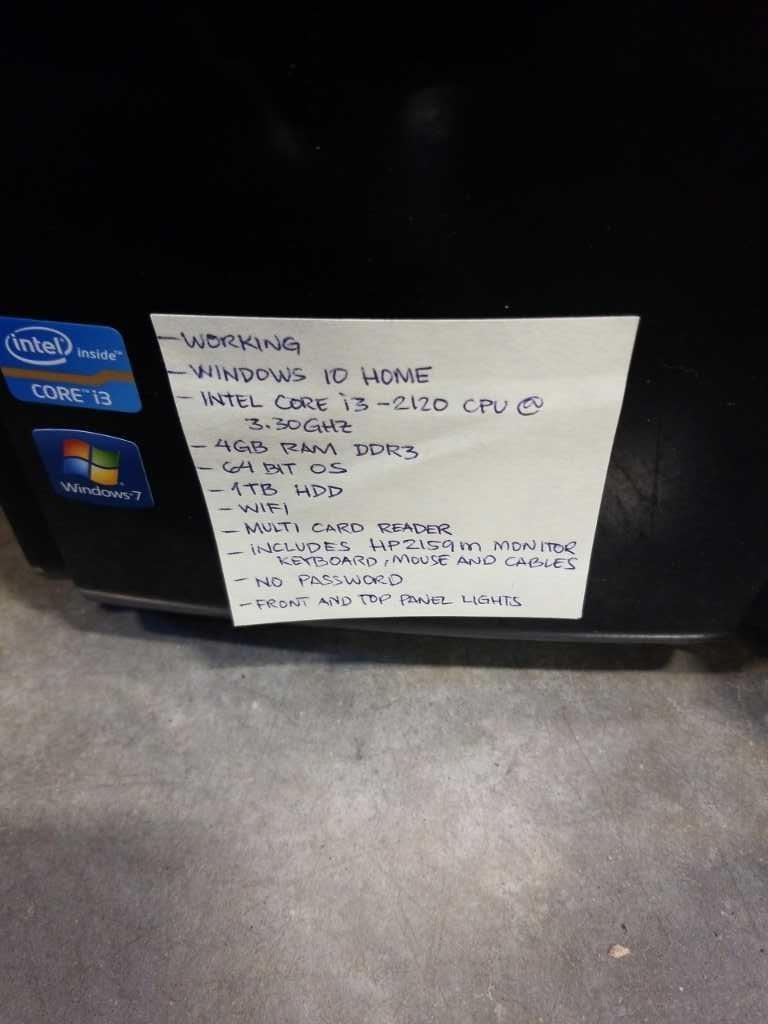 intel inside™
CORE™ i3
Windows 7
- WORKING
- WINDOWS 10 HOME
- INTEL CORE i3-2120 CPU @
3.30GHZ
- 4GB RAM DDR3
- 64 BIT OS
- 1TB HDD
- WIFI
- MULTI CARD READER
- INCLUDES HP2159m MONITOR
KEYBOARD, MOUSE AND CABLES
- NO PASSWORD
- FRONT AND TOP PANEL LIGHTS